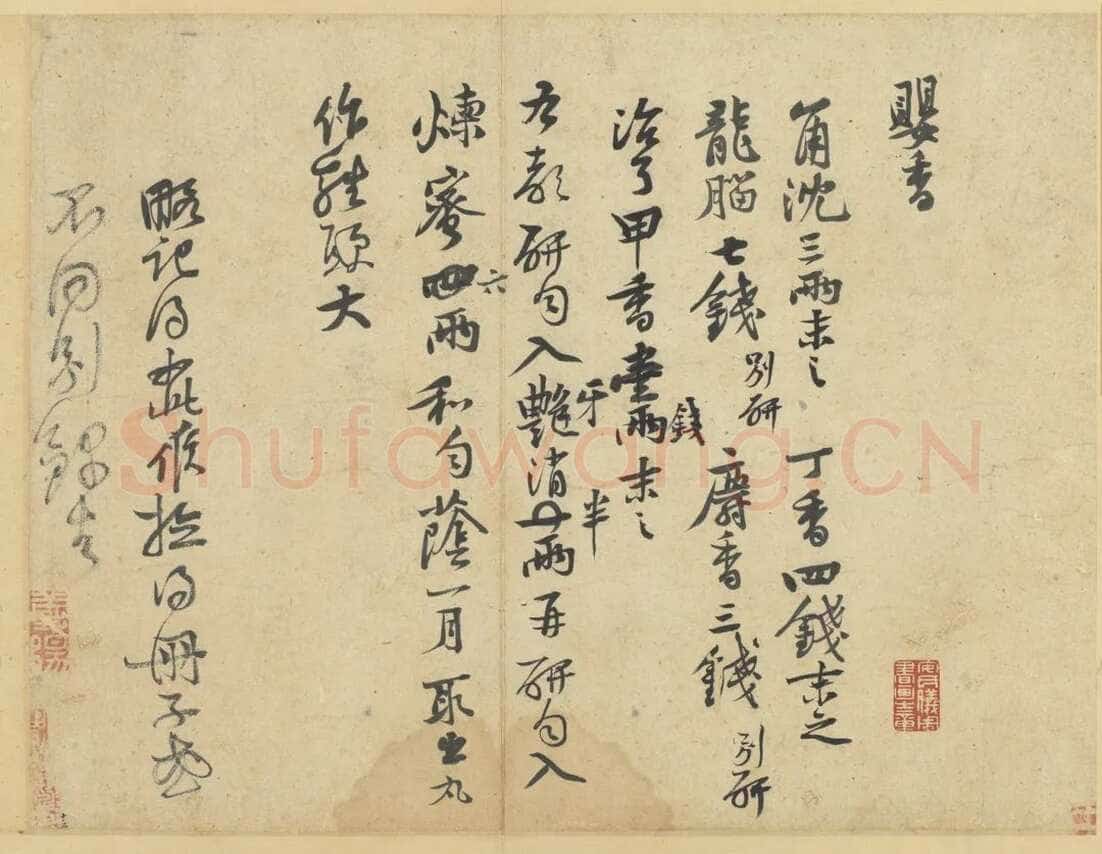 嬰香
角沈三兩末之 丁香四錢末之
龍腦七錢別研 麝香三錢別研
治了甲香壹兩錢末之
右都研勻入艷牙消半兩再研勻入
煉蜜四六兩和勻蔭一月取出丸
作雞頭大
略記得此候檢得冊子或
不同別錄去
安氏儀周書畫之章
Shufawang.CN